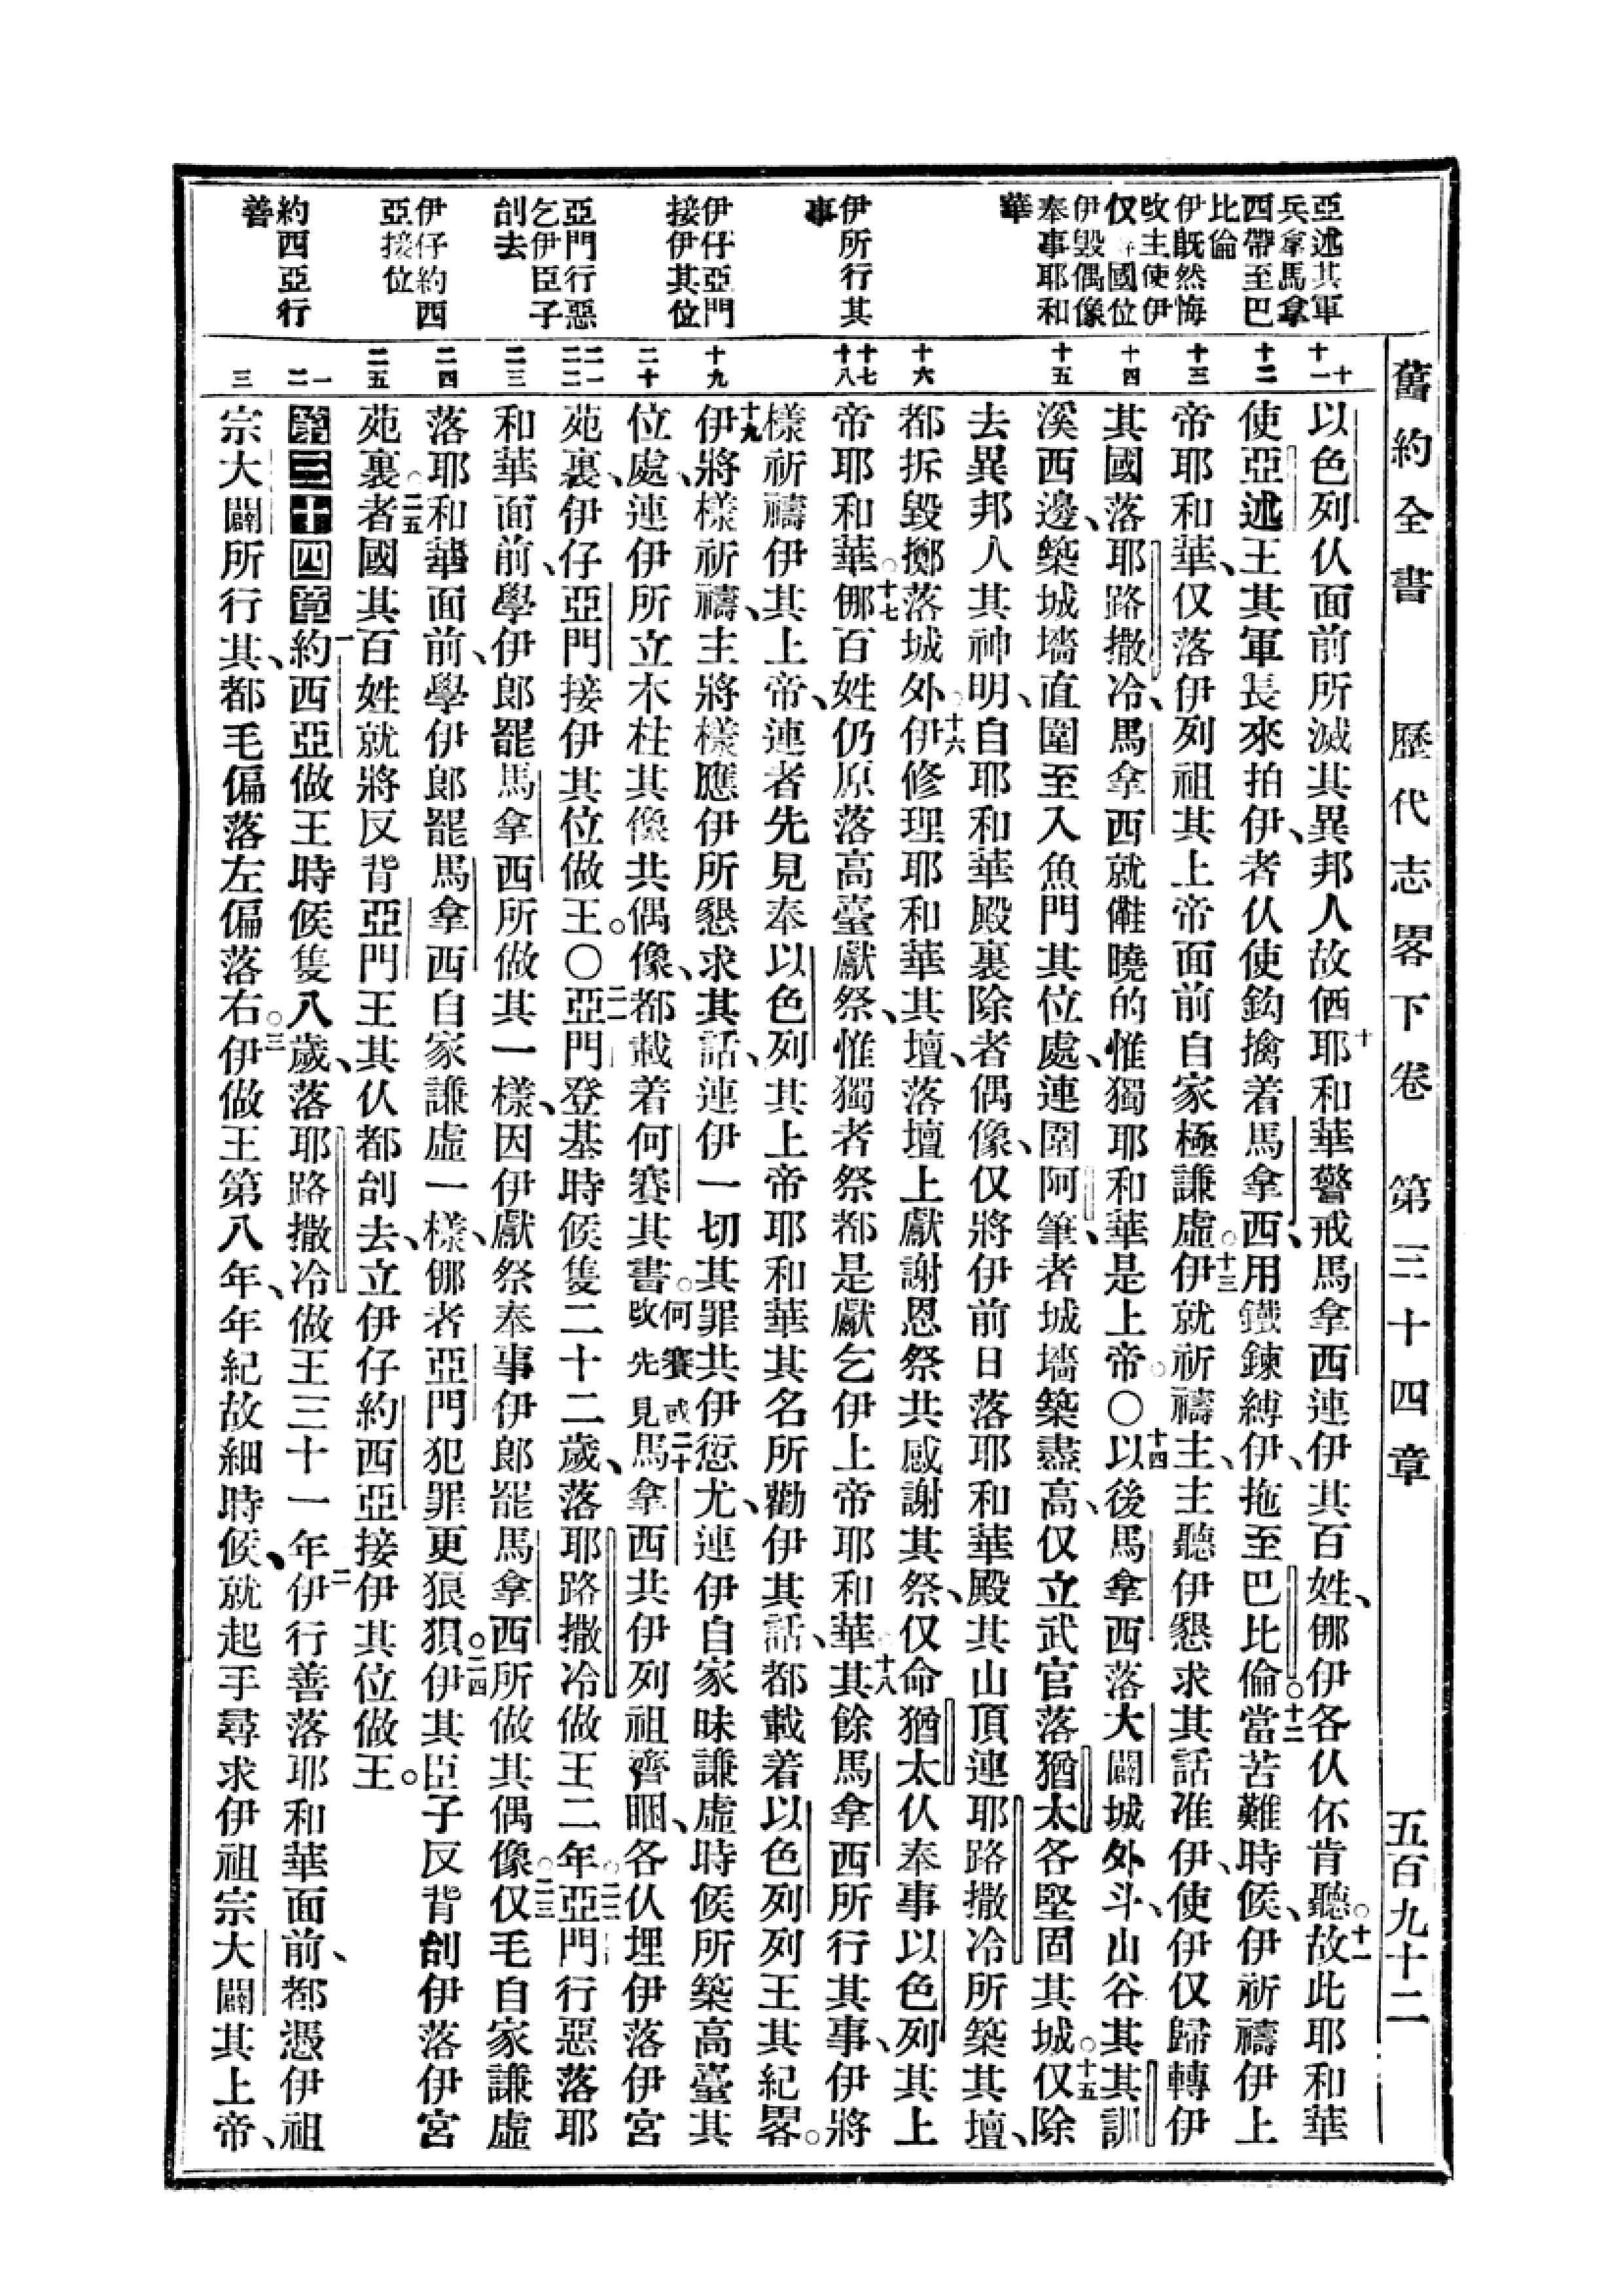 舊約全書 歷代志畧下卷 第三十四章 五百九十二
亞述其軍
兵拿馬拿
西帶至巴
比倫
伊既然悔
攺主使伊
仅國位
伊毀偶像
奉事耶和
華
伊所行其
事
伊仔亞門
接伊其位
亞門行惡
乞伊臣子
刣去
伊仔約西
亞接位
約西亞行
善
十 十一 十二 十三 十四 十五 十六 十七 十八 十九 二十 二一 二二 二三 二四 二五 一 二 三
以色列仈面前所滅其異邦人故 十耶和華警戒馬拿西連伊其百姓、㑚伊各仈伓肯聽。十一故此耶和華
使亞述王其軍長來拍伊、者仈使鈎擒着馬拿西、用鐵鍊縛伊、拖至巴比倫。十二當苦難時候、伊祈禱伊上
帝耶和華、仅落伊列祖其上帝面前自家極謙虛。十三伊就祈禱主、主聽伊懇求其話准伊、使伊仅歸轉伊
其國落耶路撒冷、馬拿西就曉的惟獨耶和華是上帝。〇十四以後馬拿西落大闢城外、斗山谷其其訓
溪西邊、築城墻直圍至入魚門其位處、連圍阿筆、者城墻築盡高、仅立武官落猶太各堅固其城。十五仅除
去異邦人其神明、自耶和華殿裏除者偶像、仅將伊前日落耶和華殿其山頂連耶路撒冷所築其壇、
都拆毀擲落城外。十六伊修理耶和華其壇、落壇上獻謝恩祭共感謝其祭、仅命猶太仈奉事以色列其上
帝耶和華。十七㑚百姓仍原落高臺獻祭、惟獨者祭都是獻乞伊上帝耶和華。十八其餘馬拿西所行其事、伊將
樣祈禱伊其上帝、連者先見奉以色列其上帝耶和華其名所勸伊其話、都載着以色列列王其紀畧。
十九伊將樣祈禱、主將樣應伊所懇求其話、連伊一切其罪共伊愆尤、連伊自家昧謙虛時候所築高臺其
位處、連伊所立木柱其像共偶像、都載着何賽其書。何賽或攺先見二十馬拿西共伊列祖齊睏、各仈埋伊落伊宮
苑裏、伊仔亞門接伊其位做王。〇二一亞門登基時候隻二十二歲、落耶路撒冷做王二年。二二亞門行惡落耶
和華面前、學伊郎罷馬拿西所做其一樣、因伊獻祭奉事伊郎罷馬拿西所做其偶像。二三仅毛自家謙虛
落耶和華面前、學伊郎罷馬拿西自家謙虛一樣、㑚者亞門犯罪更狼狽。二四伊其臣子反背刣伊落伊宮
苑裏。二五者國其百姓就將反背亞門王其仈都刣去、立伊仔約西亞接伊其位做王。
第三十四章 一約西亞做王時候隻八歲、落耶路撒冷做王三十一年。二伊行善落耶和華面前、都憑伊祖
宗大闢所行其、都毛偏落左偏落右。三伊做王第八年、年紀故細時候、就起手尋求伊祖宗大闢其上帝、